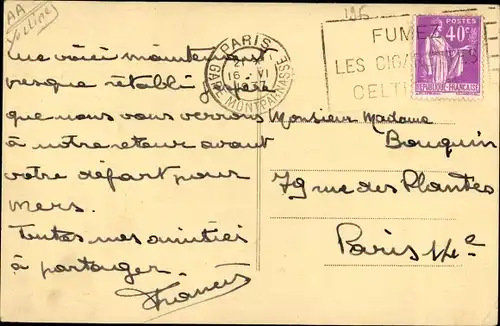 AA
196
PARIS
GARE MONTPARNASSE
16 - VI
1937
FUMEZ
LES CIGA
ES
CELTI
POSTES
40c
REPUBLIQUE FRANÇAISE
Me voici maintenant
presque rétabli
que nous vous verrons
à notre retour avant
votre départ pour
Mers.
Toutes mes amitiés
à partager.
Francis
Monsieur Madame
Bouquin
79 rue des Plantes
Paris 14e